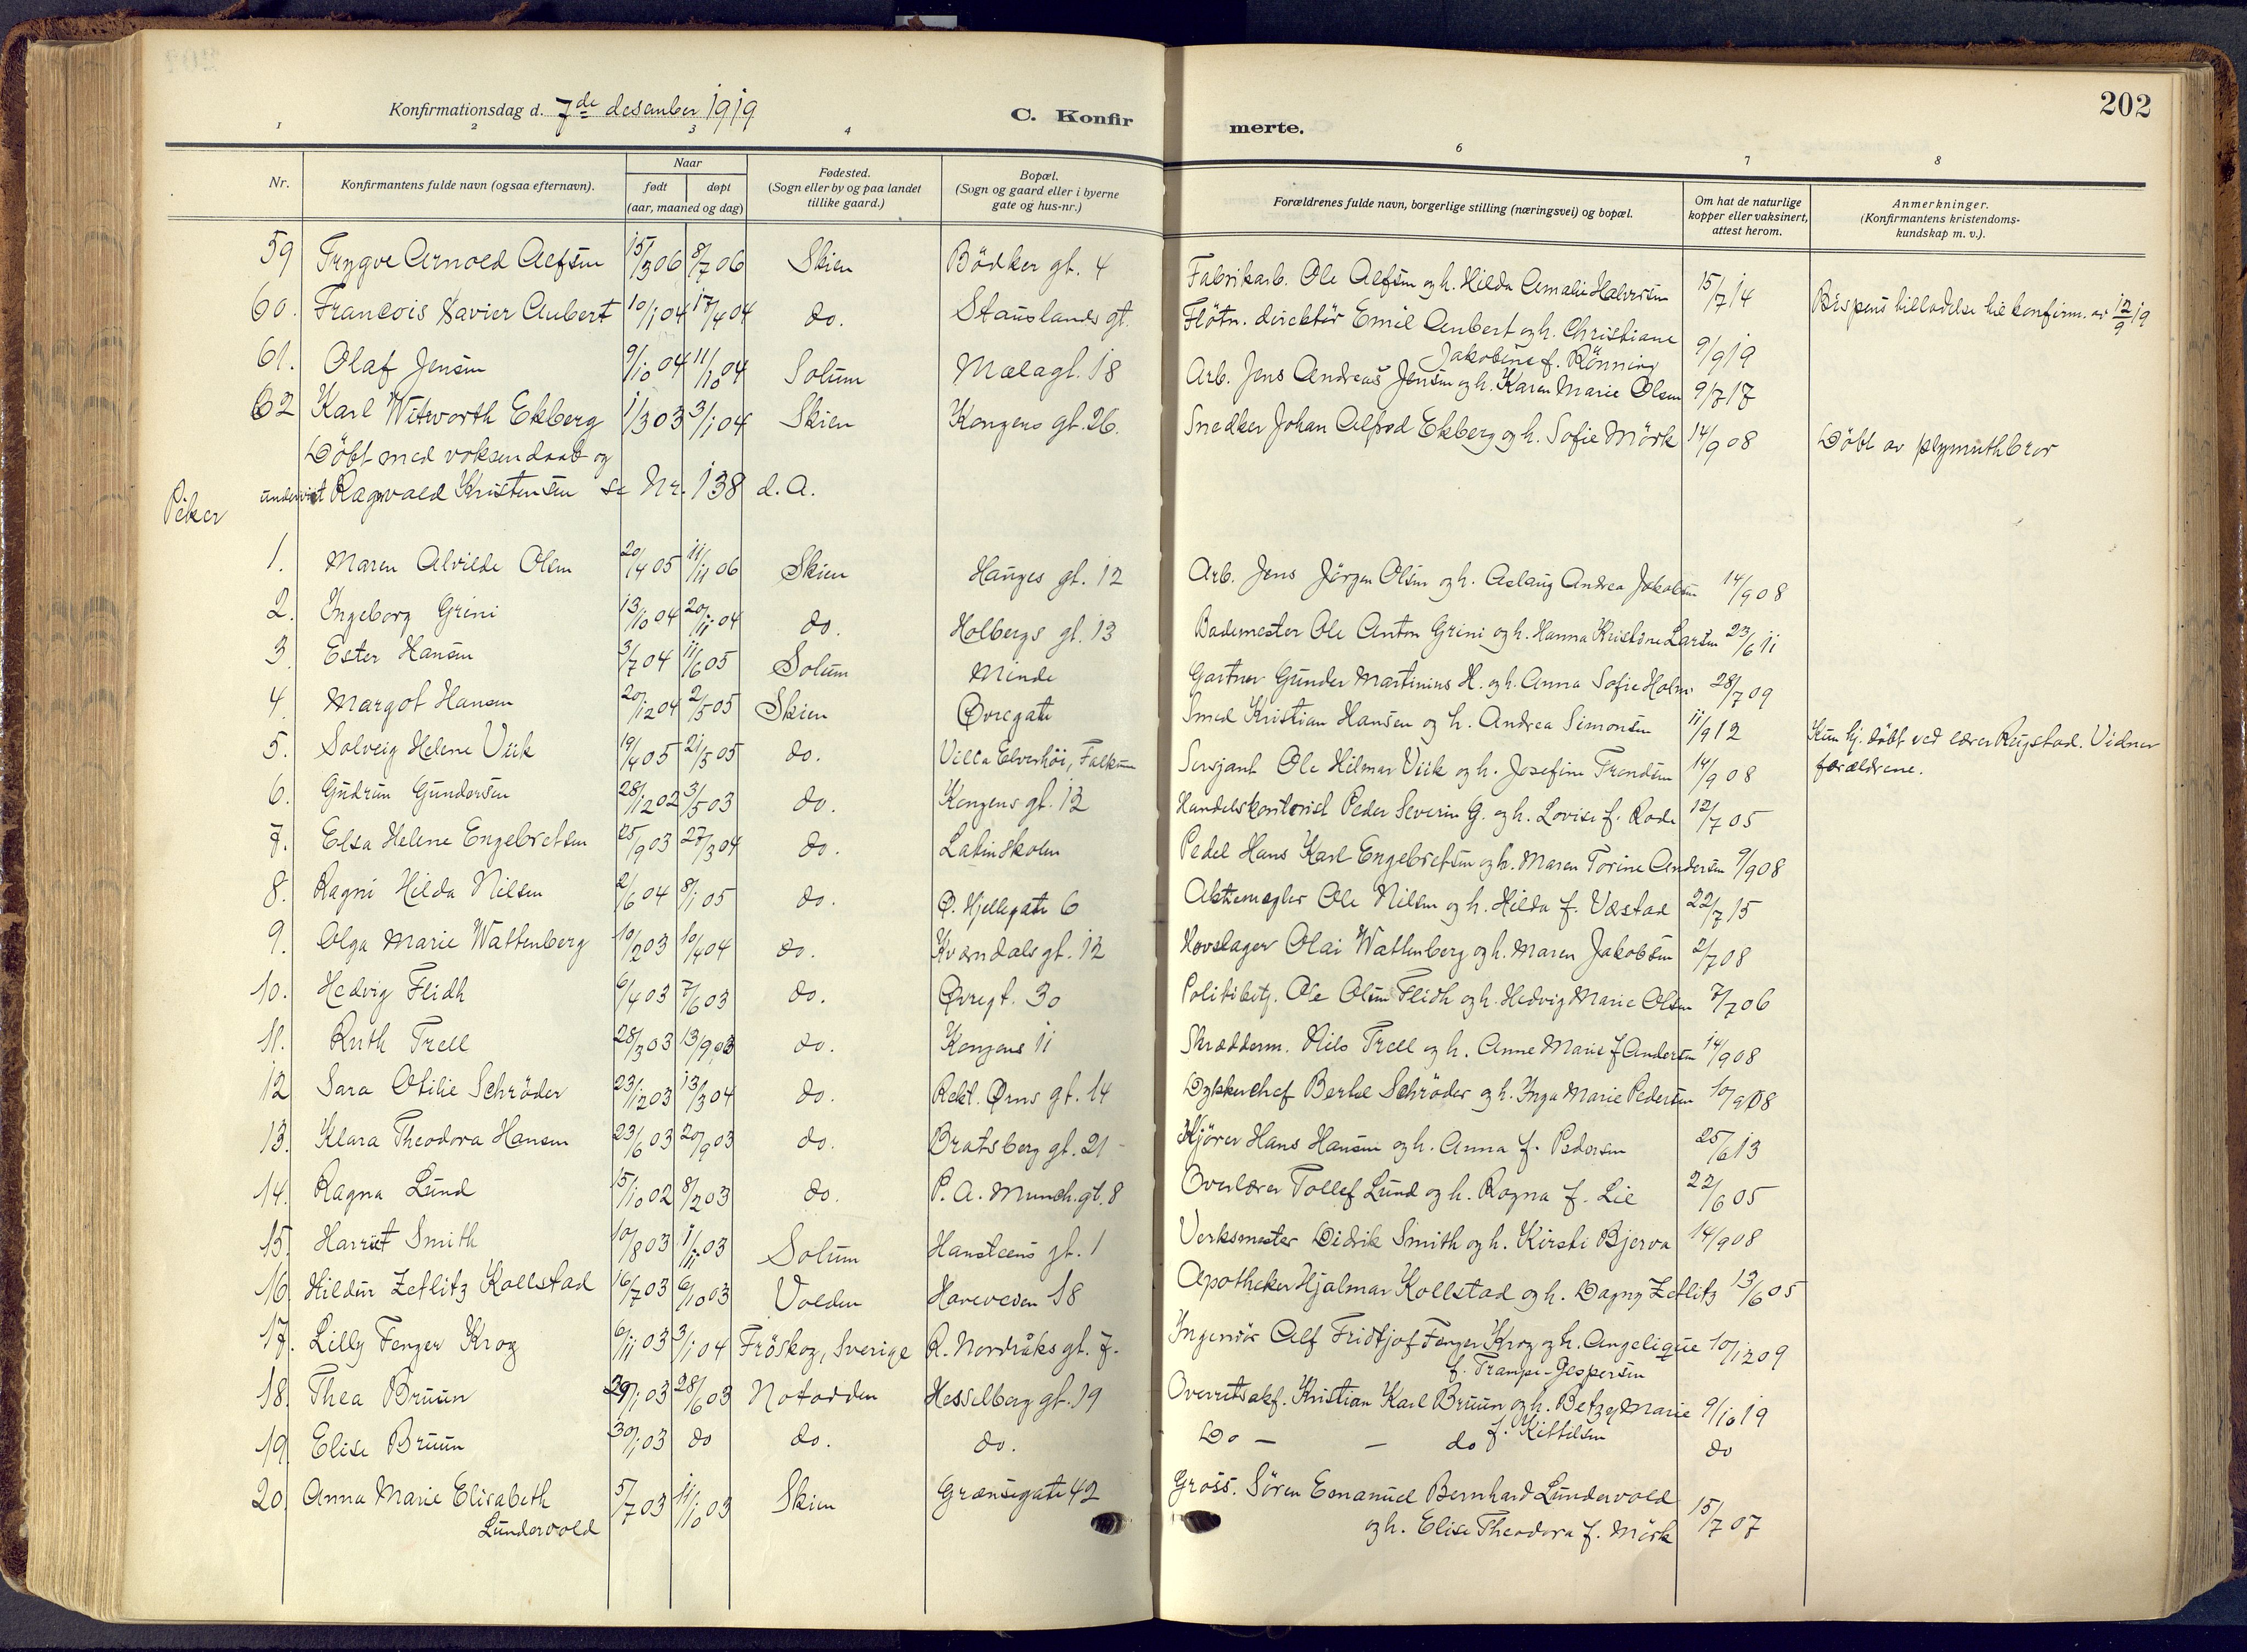 202
Konfirmationsdag d. 7de desember 1919
C. Konfirmerte.
1 2 3 4 6 7 8
Nr. | Konfirmantens fulde navn (ogsaa efternavn). | Naar født | døpt (aar, maaned og dag) | Fødested. (Sogn eller by og paa landet tillike gaard.) | Bopæl. (Sogn og gaard eller i byerne gate og hus-nr.) | Forældrenes fulde navn, borgerlige stilling (næringsvei) og bopæl. | Om hat de naturlige kopper eller vaksinert, attest herom. | Anmerkninger. (Konfirmantens kristendoms-kundskap m. v.).
59 Trygve Arnold Alfsen 15/3 06 8/7 06 Skien Bödker gt. 4 Fabrikarb. Ole Alfsen og h. Hilda Amalie Halvorsen 15/7 14 Bispens tilladelse til konfirm. av 12/9 19
60. Francois Xavier Aubert 10/1 04 17/4 04 do. Stauslands gt. Flötn. direktör Emil Aubert og h. Christiane Jakobine f. Rönning 9/9 19
61. Olaf Jensen 9/10 04 11/10 04 Solum Mælagt. 18 Arb. Jens Andreas Jensen og h. Karen Marie Olsen 9/7 17
62 Karl Witworth Ekberg 1/3 03 3/1 04 Skien Kongens gt. 26. Snedker Johan Alfred Ekberg og h. Sofie Mörk 14/9 08 Döbt av plymuthbror
Döbt med voksendaab og
undervist Ragnvald Kristensen se Nr. 138 d. A.
Piker
1. Maren Alvilde Olsen 20/4 05 11/11 06 Skien Hauges gt. 12 Arb. Jens Jörgen Olsen og h. Aslaug Andrea Jakobsen 14/9 08
2. Ingeborg Grini 13/10 04 20/11 04 do. Holbergs gt. 13 Bademester Ole Anton Grini og h. Hanna Kristine Larsen 23/6 11
3. Ester Hansen 3/7 04 11/6 05 Solum Minde Gartner Gunder Martinius H. og h. Anna Sofie Holm 28/7 09
4. Margot Hansen 20/12 04 2/5 05 Skien Øvregate Smed Kristian Hansen og h. Andrea Simonsen 11/9 12
5. Solveig Helene Viik 19/4 05 21/5 05 do. Villa Elverhöi, Falkum Sersjant Ole Hilmar Viik og h. Josefine Trondsen 14/9 08 Kun hj. döbt ved lærer Rugstad. Vidner forældrene.
6. Gudrun Gundersen 28/12 02 3/5 03 do. Kongens gt. 12 Handelskontorist Peder Severin G. og h. Lovise f. Rode 12/7 05
7. Elsa Helene Engebretsen 25/9 03 27/3 04 do. Latinskolen Pedel Hans Karl Engebretsen og h. Maren Torine Andersen 9/9 08
8. Ragni Hilda Nilsen 2/6 04 8/1 05 do. Ø. Hjellegate 6 Aktiemægler Ole Nilsen og h. Hilda f. Væstad 22/7 15
9. Olga Marie Wattenberg 10/2 03 10/4 04 do. Kværndals gt. 12 Hovslager Olai Wattenberg og h. Maren Jakobsen 2/7 08
10. Hedvig Flidh 6/4 03 7/6 03 do. Øvregt. 30 Politibetj. Ole Olsen Flidh og h. Hedvig Marie Olsen 7/7 06
11. Ruth Trell 28/3 03 13/9 03 do. Kongens 11 Skrædderm. Nils Trell og h. Anne Marie f Andersen 14/9 08
12 Sara Otilie Schröder 23/12 03 13/3 04 do. Rekt. Ørns gt. 14 Dykkerchef Bertel Schröder og h. Inga Marie Pedersen 10/9 08
13. Klara Theodora Hansen 23/6 03 20/9 03 do. Bratsberg gt. 21 Kjörer Hans Hansen og h. Anna f. Pedersen 25/6 13
14. Ragna Lund 15/10 02 8/2 03 do. P. A. Munch. gt. 8 Overlærer Tollef Lund og h. Ragna f. Lie 22/6 05
15. Harriet Smith 10/8 03 1/11 03 Solum Hansteens gt. 1 Verksmester Didrik Smith og h. Kirsti Bjerva 14/9 08
16. Hildur Zetlitz Kollstad 16/7 03 6/10 03 Volden Hareveien 18 Apotheker Hjalmar Kollstad og h. Dagny Zetlitz 13/6 05
17. Lilly Fenger Krog 6/11 03 3/1 04 Fröskog, Sverige R. Nordråks gt. 7. Ingeniör Alf Fridtjof Fenger Krog og h. Angelique f. Trampe-Jespersen 10/12 09
18. Thea Bruun 29/1 03 28/6 03 Notodden Hesselberg gt. 19 Overretssakf. Kristian Karl Bruun og h. Betzy Marie f. Kittelsen 9/10 19
19. Elise Bruun 30/1 03 do do. do. Do — — do do
20. Anna Marie Elisabeth Lundervold 5/7 03 11/10 03 Skien Grænsegate 42 Gross. Sören Emanuel Bernhard Lundervold og h. Elise Theodora f. Mörk 15/7 07